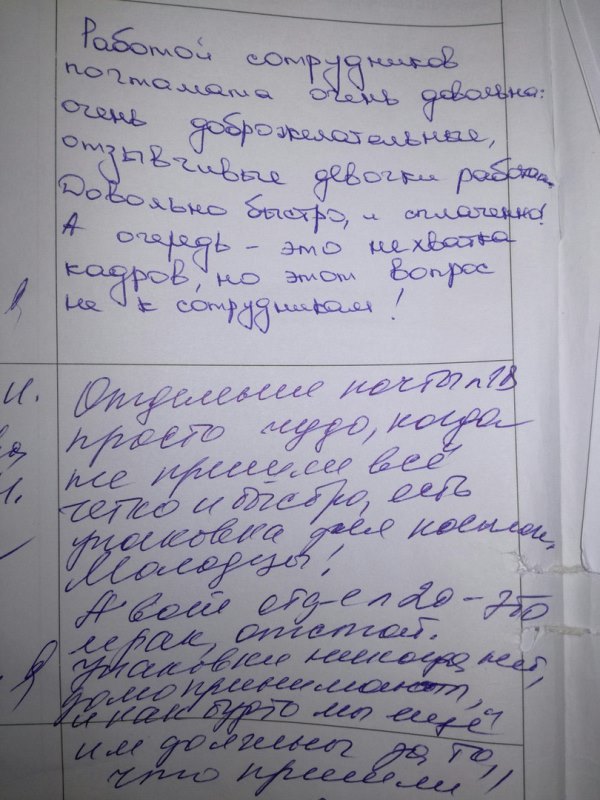 Работой сотрудников
почтамата очень довольна:
очень доброжелательные,
отзывчивые девочки
Довольно быстро, и сплаченно!
А очередь – это нехватка
кадров, но этот вопрос
не к сотрудникам!
Я
и.
Отделение почты п18
просто чудо, когда
не пришли всё
чётко и быстро, есть
упаковка для посылок.
Молодцы!
А вот отд-е п 20 – это
мрак, отстой.
упаковки никогда нет,
и как будто мы ещё
им должны за то,
что пришли"